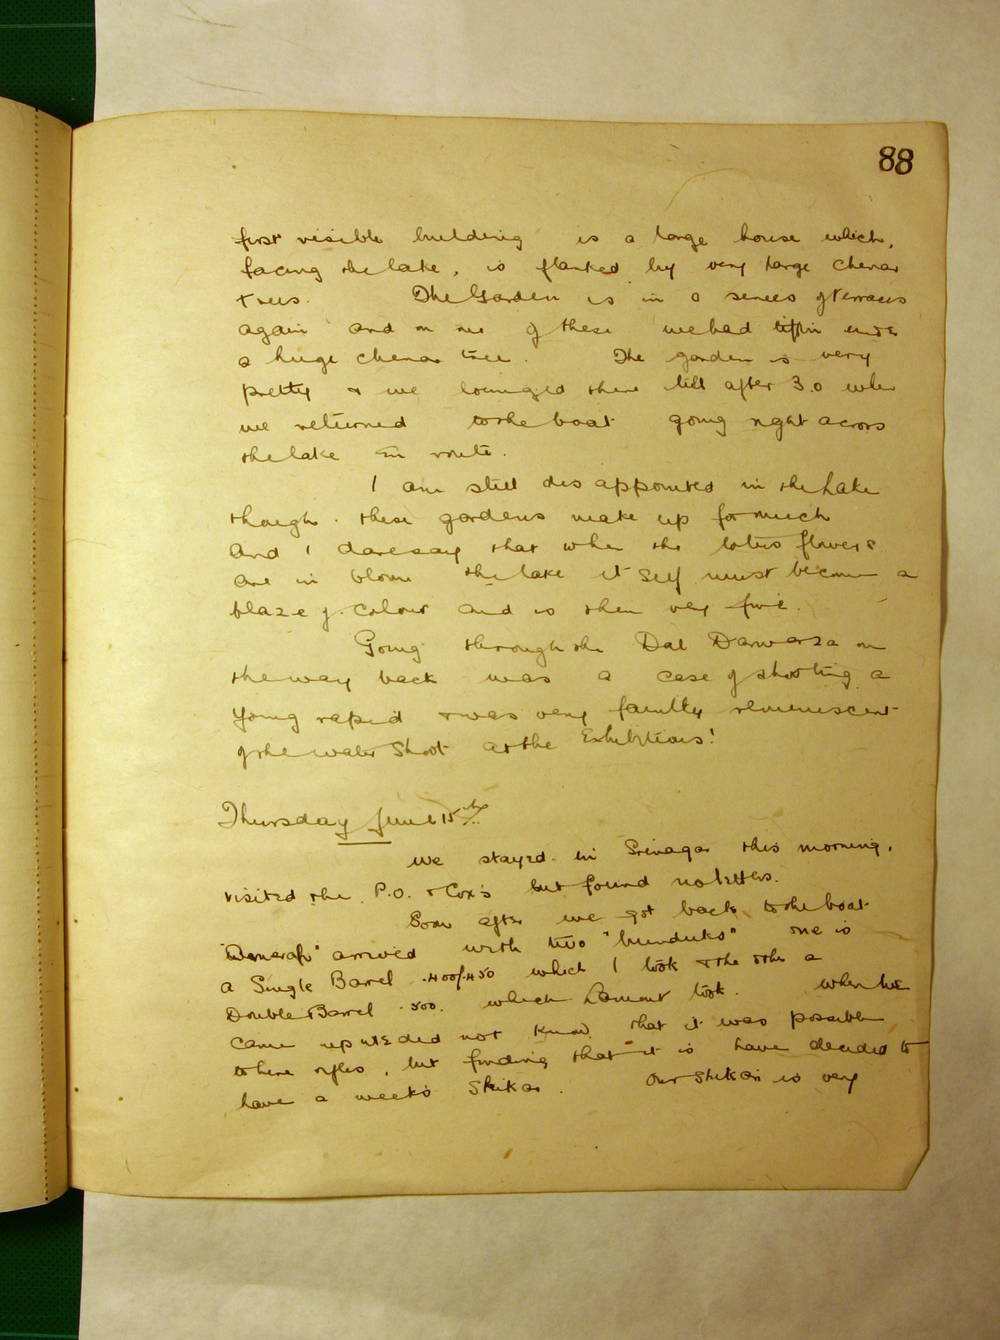 88
first visible building is a large house which,
facing the lake, is flanked by very large chenar
trees. The Garden is in a series of terraces
again and on one of these we had tiffin under
a huge chenar tree. The garden is very
pretty & we lounged there till after 3.0 when
we returned to the boat going right across
the lake en route.
I am still disappointed in the Lake
though these gardens make up for much
and I daresay that when the lotus flowers
are in bloom the lake itself must become a
blaze of colour and is then very fine.
Going through the Dal Darwaza on
the way back was a case of shooting a
young rapid & was very faintly reminiscent
of the water shoot at the Exhibitions!
Thursday June 15th
We stayed in Srinagar this morning,
visited the P.O. & Cox's but found no letters.
Soon after we got back to the boat
arrived with two "bunduks" one is
a Single Barrel .400/.450 which I took & the other a
Double Barrel .500. which Lamont took. When we
came up we did not know that it was possible
to hire rifles, but finding that it is have decided to
have a week's Shikar. Our Shikari is very